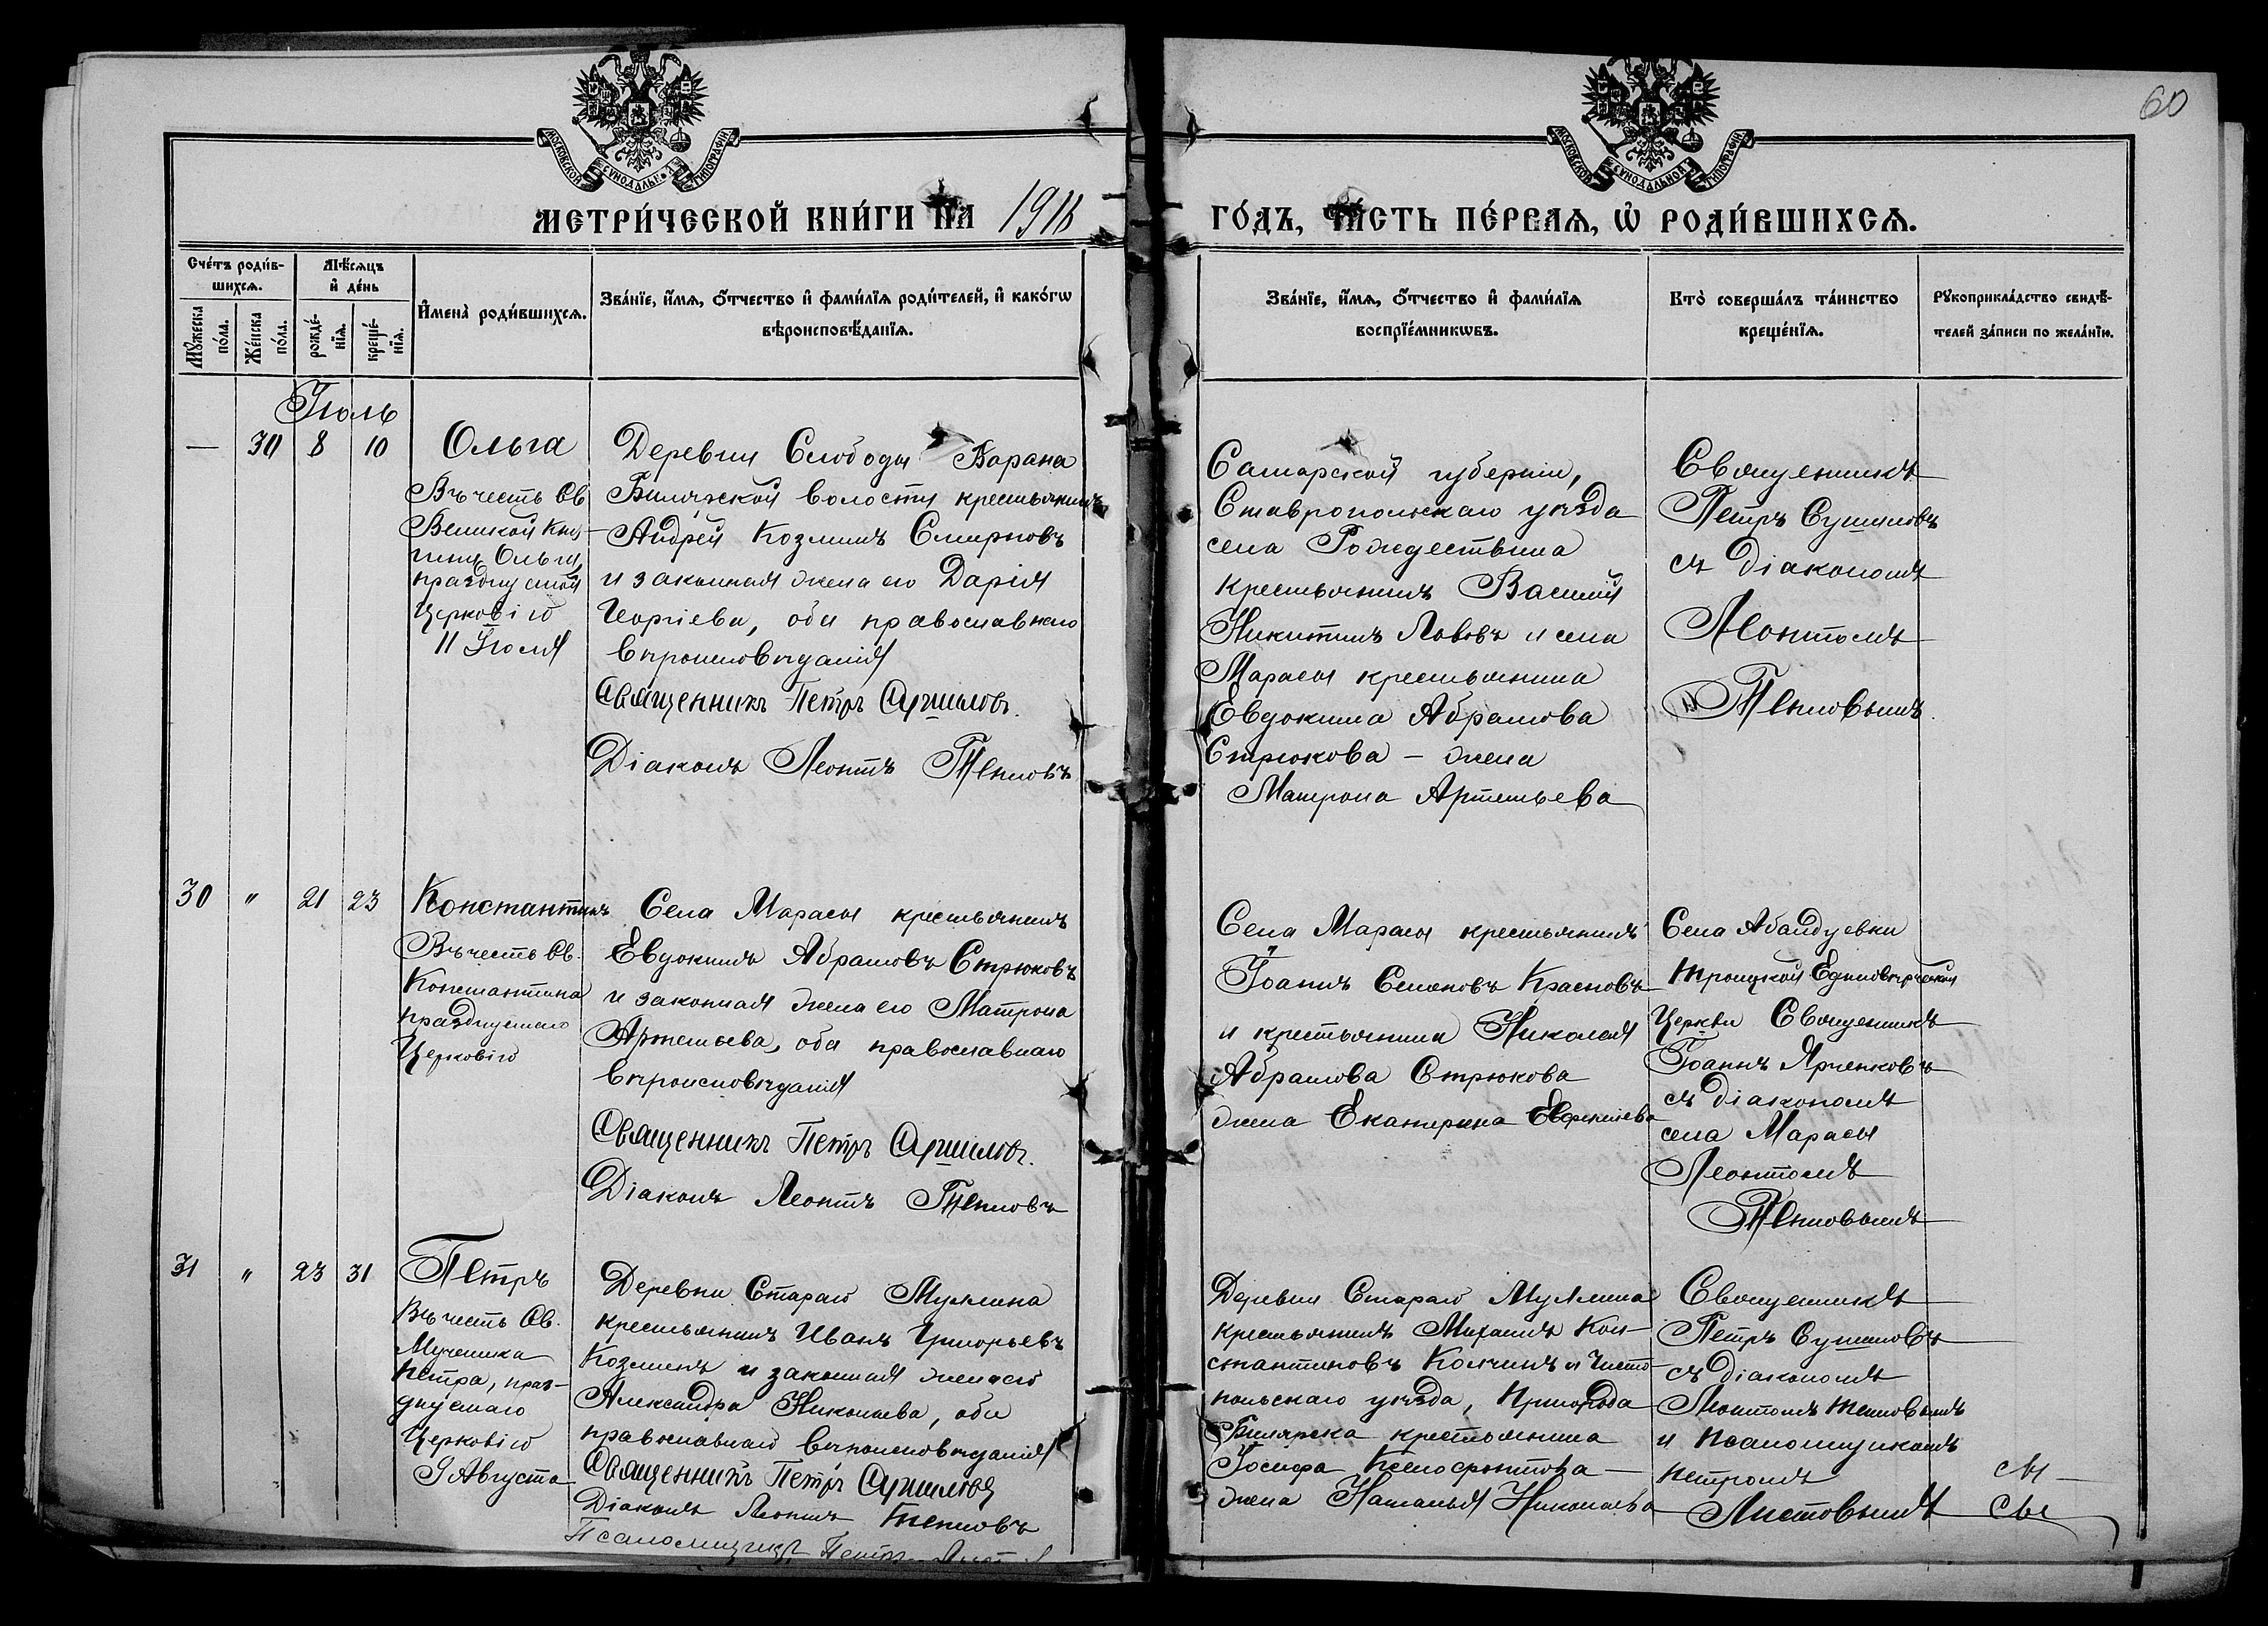 60
МОСКОВСКОЙ СѴНОДАЛЬНОЙ ТИПОГРАФІИ
МОСКОВСКОЙ СѴНОДАЛЬНОЙ ТИПОГРАФІИ
МЕТРИ́ЧЕСКОЙ КНИ́ГИ НА 1916
ГО́ДЪ, ЧА́СТЬ ПЕ́РВАѦ, Ѡ҆ РОДИ́ВШИХСѦ.
Сче́тъ роди́в-
шихсѧ.
Мꙋ́жеска
по́ла.
Же́нска
по́ла.
Мѣ́сѧцъ
и҆ де́нь
рожде́-
нїѧ.
креще́-
нїѧ.
И҆мена̀ роди́вшихсѧ.
Зва́нїе, и҆́мѧ, ѻ҆́тчество и҆ фами́лїѧ роди́телей, и҆ како́гѡ
вѣроисповѣ́данїѧ.
Зва́нїе, и҆́мѧ, ѻ҆́тчество и҆ фами́лїѧ
воспрїе́мникѡвъ.
Кто̀ соверша́лъ та́инство
креще́нїѧ.
Рꙋкоприкла́дство свидѣ́-
телей за́писи по жела́нїю.
Іюль
— 30 8 10
Ольга
Въ честь Св
Великой Кня-
гини Ольги,
празднуемой
Церковію
11 Іюля
Деревни Слободы Барана
Билярской волости крестьянинъ
Андрей Козминъ Смирновъ
и законная жена его Дарія
Георгіева, оба православнаго
вѣроисповѣданія
Священникъ Петръ Сушиловъ.
Діаконъ Леонтъ Тепловъ
Самарской губерніи,
Ставропольскаго уѣзда
села Рождествина
крестьянинъ Василій
Никитинъ Лавовъ и села
Марасы крестьянина
Евдокима Абрамова
Стрюкова – жена
Матрона Артемьева
Священникъ
Петръ Сушиловъ
съ діакономъ
Леонтомъ
Тепловымъ
30 " 21 23
Константинъ
Въ честь Св.
Константина
празднуемаго
Церковію
Села Марасы крестьянинъ
Евдокимъ Абрамовъ Стрюковъ
и законная жена его Матрона
Артемьева, оба православнаго
вѣроисповѣданія
Священникъ Петръ Сушиловъ.
Діаконъ Леонтъ Тепловъ
Села Марасы крестьянинъ
Іоаннъ Семеновъ Красновъ
и крестьянина Николая
Абрамова Стрюкова
жена Екатерина
Села Абалдуевки
Троицкой Единовѣрческой
Церкви Священникъ
Іоаннъ
съ діакономъ
села Марасы
Леонтомъ
Тепловымъ
31 " 23 31
Петръ
Въ честь Св.
Мученика
Петра, праз-
днуемаго
Церковію
9 Августа
Деревни Стараго Муллина
крестьянинъ Иванъ Григорьевъ
Козминъ и законная жена его
Александра Николаева, оба
православнаго вѣроисповѣданія
Священникъ Петръ Сушиловъ
Діаконъ Леонтъ Тепловъ
Псаломщикъ Петръ
Деревни Стараго Муллина
крестьянинъ Михаилъ Кон-
стантиновъ и Чисто-
польскаго уѣзда, Пригорода
Билярска крестьянина
Іосифа Ксенофонтова —
жена Наталья Николаева
Священникъ
Петръ Сушиловъ
съ діакономъ
Леонтомъ Тепловымъ
и псаломщикомъ
Петромъ
Листовымъ